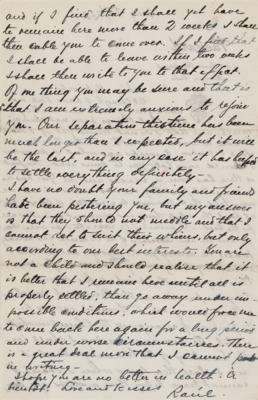 and if I find that I shall yet have
to remain here more than 2 weeks I shall
then cable you to come over. If I find that
I shall be able to leave within two weeks
I shall then write to you to that effect.
Of one thing you may be sure and that is
that I am extremely anxious to rejoin
you. Our separation this time has been
much longer than I expected, but it will
be the last, and in any case it has helped
to settle everything definitely—
I have no doubt your family and friends
have been pestering you, but my answer
is that they should not meddle and that I
cannot act to suit their whims, but only
according to our best interests. You are
not a child and should realise that it
is better that I remain here until all is
properly settled, than go away under im
possible conditions, which would force me
to come back here again for a long period
and under worse circumstances. There
is a great deal more that I cannot put
in writing—
I hope you are no better in health: &
Love and kisses
Raúl.